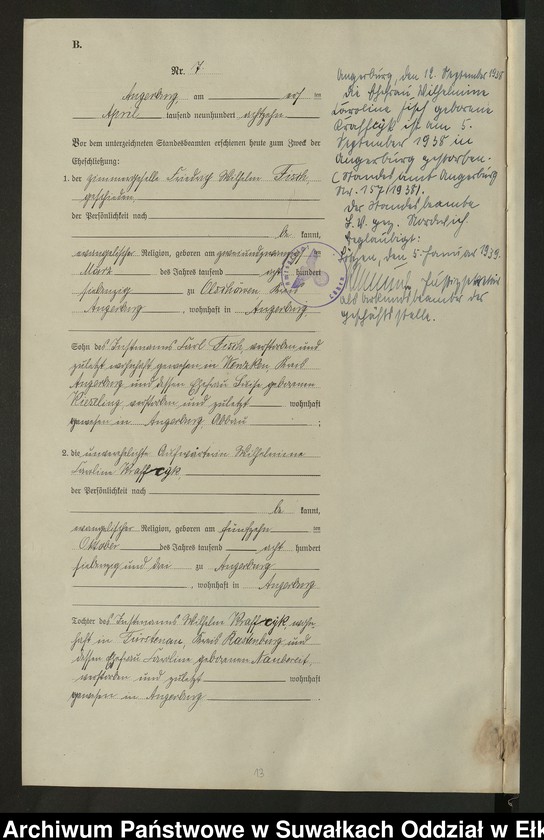 B.
Nr. 7
Angerburg, am elf ten
April tausend neunhundert achtzehn
Vor dem unterzeichneten Standesbeamten erschienen heute zum Zweck der
Eheschließung:
1. der Zimmergeselle Friedrich Wilhelm Fisch,
geschieden
der Persönlichkeit nach
be kannt,
evangelischer Religion, geboren am zweiundzwanzig sten
März des Jahres tausend acht hundert
siebenzig zu Olschöwen Kreis
Angerburg, wohnhaft in Angerburg
Sohn des Instmanns Carl Fisch, verstorben und
zuletzt wohnhaft gewesen in Wenzken, Kreis
Angerburg und dessen Ehefrau Luise geborenen
Kiesling, verstorben und zuletzt wohnhaft
gewesen in Angerburg Abbau ;
2. die unverehelichte Aufwärterin Wilhelmine
Caroline Kraffcyk
der Persönlichkeit nach
be kannt,
evangelischer Religion, geboren am fünfzehn ten
Oktober des Jahres tausend acht hundert
siebenzig und drei zu Angerburg
, wohnhaft in Angerburg
Tochter des Instmanns Wilhelm Kraffcyk wohn-
haft in Fürstenau, Kreis Rastenburg und
dessen Ehefrau Caroline geborenen
verstorben und zuletzt wohnhaft
gewesen in Angerburg .
Angerburg, den 12. September 1938
Die Ehefrau Wilhelmine
Caroline Fisch geborene
Kraffcyk ist am 5.
September 1938 in
Angerburg gestorben.
(Standesamt Angerburg
Nr. 157/1938).
Der Standesbeamte
I. V. gez. Nordwich.
Beglaubigt:
Lötzen, den 5. Januar 1939.
Justizsekretär
als Urkundsbeamter der
Geschäftsstelle.
13
Archiwum Państwowe w Suwałkach Oddział w Ełku